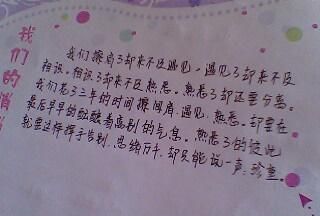 我们的消
我们擦肩了却来不及遇见，遇见了却来不及
相识。相识了却来不及熟悉。熟悉了却还要分离。
我们花了三年的时间擦间肩、遇见、熟悉。却要在
最后早早的散散着离别的气息。熟悉了的彼此
就要这样挥手告别，思绪万千，却只能说一声：珍重。